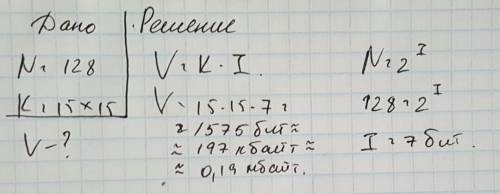 Дано
N = 128
K = 15×15
V - ?
Решение
V = K · I.
V = 15 · 15 · 7 =
= 1575 бит ≈
≈ 197 кбайт ≈
≈ 0,19 мбайт.
N = 2^I
128 = 2^I
I = 7 бит.